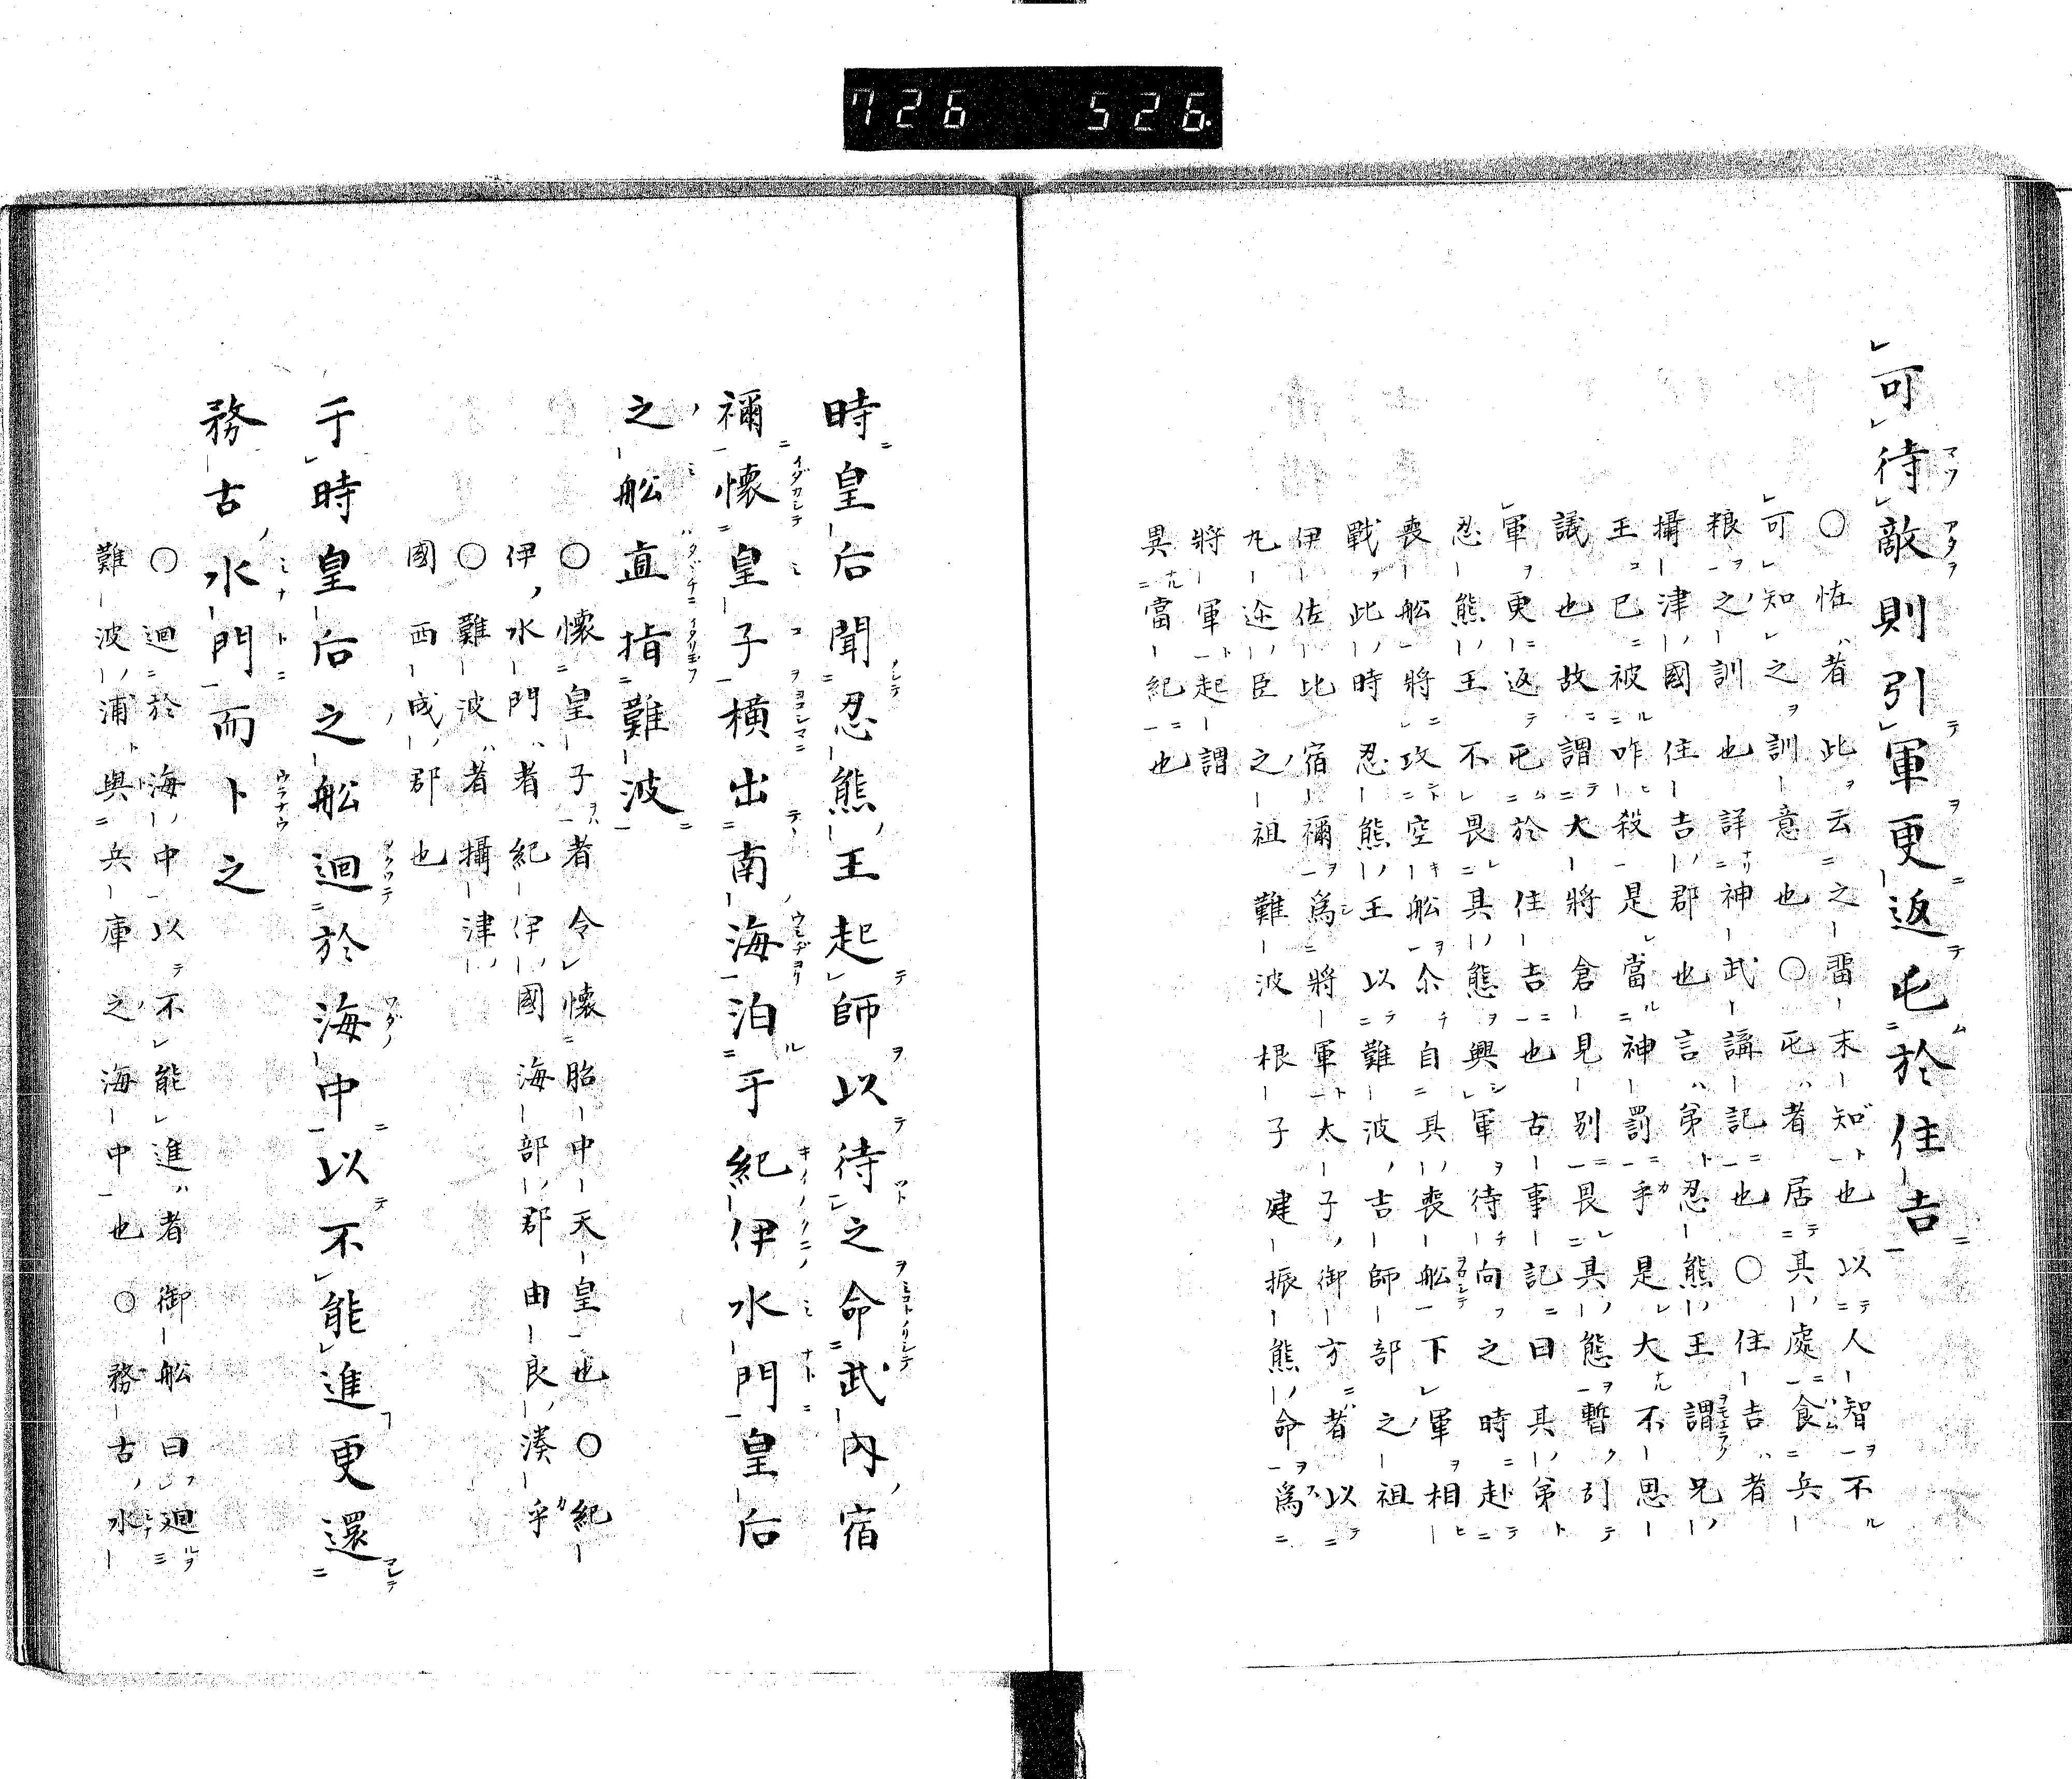 726 526.
可待敵則引軍更返屯於住吉
○恠者此云之畱末知也以人智不
可知之訓意也○屯者居其處食兵
粮之訓也詳神武講記也○住吉者
攝津國住吉郡也言弟忍熊王謂兄
王已被咋殺是當神罰乎是大不思
議也故謂大將倉見別畏其熊暫引
軍更返屯於住吉也古事記曰其弟
忍熊王不畏其熊興軍待向之時赴
喪舩將攻空舩尒自其喪舩下軍相
戰此時忍熊王以難波吉師部之祖
伊佐比宿禰爲將軍太子御方者以
丸迩臣之祖難波根子建振熊命爲
將軍起謂
異當紀也
時皇后聞忍熊王起師以待之命武內宿
禰懷皇子橫出南海泊于紀伊水門皇后
之舩直指難波
○懷皇子者令懷胎中天皇也○紀
伊水門者紀伊國海部郡由良湊乎
○難波者攝津
國西成郡也
于時皇后之舩迴於海中以不能進更還
務古水門而卜之
○迴於海中以不能進者御舩曰迴
難波浦與兵庫之海中也○務古水